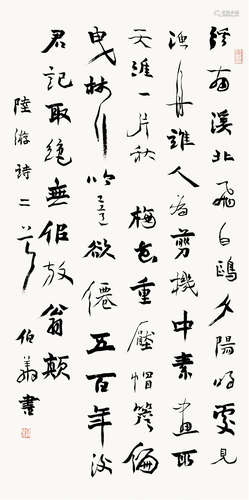 南溪北飛白鷗夕陽明處見
漁舟誰人為剪機中素畫取
天涯一片秋 梅花重壓帽簷偏
曳杖行吟意欲僊五百年後
君記取絕無佀放翁顛
陸游詩二首 伯書